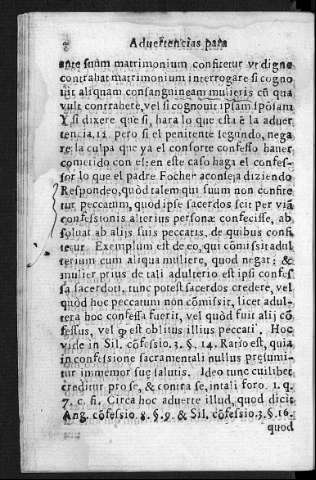 Aduertencias para
ante suum matrimonium confitetur vt digne
contrahat matrimonium interrogare si cogno
uit aliquam consanguineam mulieris cũ qua
vult contrahere, vel si cognouit ipsam sponsam
Y si dixere que si, hara lo que esta ẽ la aduer
tencia.12. pero si el penitente segundo, nega
re la culpa que ya el consorte confesso hauer
cometido con el: en este caso haga el confes-
sor lo que el padre Focher aconseja diziendo
Respondeo, quòd talem qui suum non confite
tur peccatum, quod ipse sacerdos scit per viã
confessionis alterius personæ confecisse, ab
soluat ab alijs suis peccatis. de quibus confi
tetur. Exemplum est de eo, qui cõmissit adul
terium cum aliqua muliere, quod negat; &
mulier prius de tali adulterio est ipsi confes
sa sacerdoti. tunc potest sacerdos credere, vel
quòd hoc peccatum non cõmissit, licet adul-
tera hoc confessa fuerit, vel quòd fuit alij cõ
fessus, vel q̃ est oblitus illius peccati. Hoc
vide in Sil. cõfessio.3. §. 14. Ratio est, quia
in confessione sacramentali nullus præsumi-
tur immemor suæ salutis. Ideo tunc cuilibet
creditur pro se, & contra se, in tali foro. 1. q.
7. c. fi. Circa hoc aduerte illud, quod dicit
Ang. cõfessio. 8. §. 9. & Sil. cõfessio.3. §.16.
quod